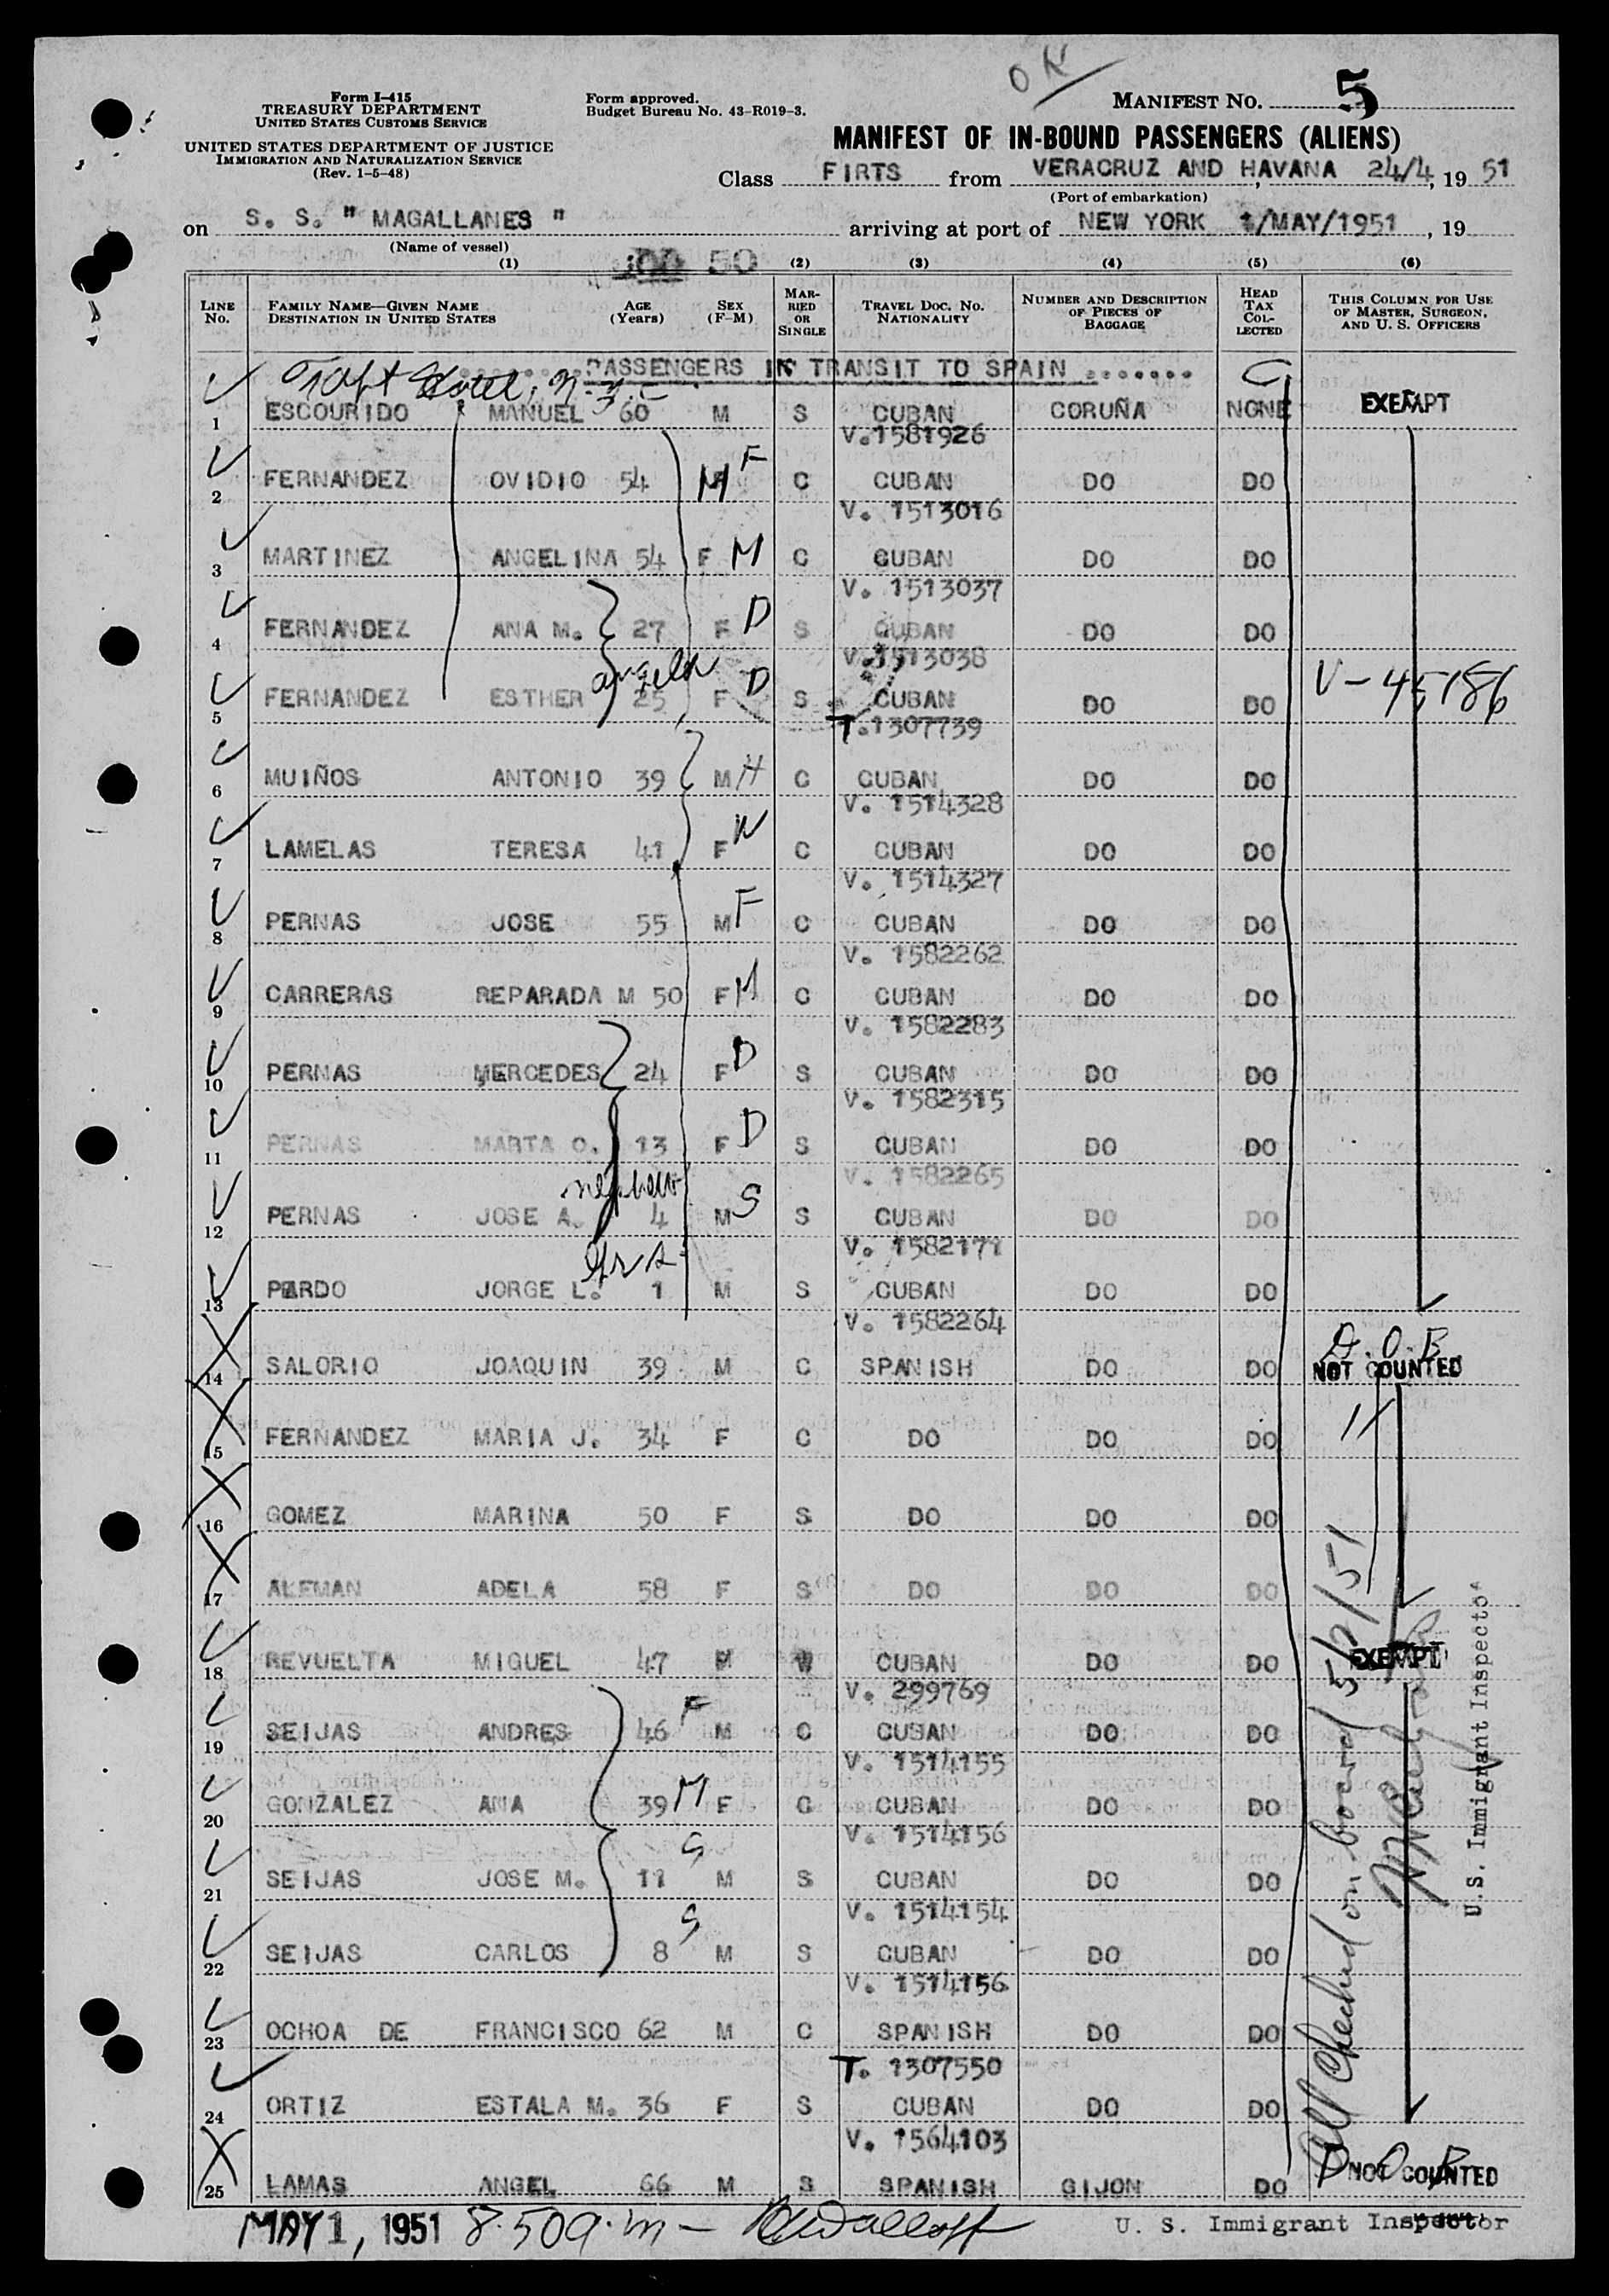 OK
Form I-415
TREASURY DEPARTMENT
UNITED STATES CUSTOMS SERVICE
UNITED STATES DEPARTMENT OF JUSTICE
IMMIGRATION AND NATURALIZATION SERVICE
(Rev. 1-5-48)
Form approved.
Budget Bureau No. 43-R019-3.
MANIFEST NO. 5
MANIFEST OF IN-BOUND PASSENGERS (ALIENS)
Class FIRTS from VERACRUZ AND HAVANA 24/4, 19 51
(Port of embarkation)
on S. S. " MAGALLANES " arriving at port of NEW YORK 1/MAY/1951, 19
(Name of vessel)
(1) 50 (2) (3) (4) (5) (6)
LINE NO. FAMILY NAME—GIVEN NAME DESTINATION IN UNITED STATES AGE (Years) SEX (F-M) MARRIED OR SINGLE TRAVEL DOC. NO. NATIONALITY NUMBER AND DESCRIPTION OF PIECES OF BAGGAGE HEAD TAX COLLECTED THIS COLUMN FOR USE OF MASTER, SURGEON, AND U. S. OFFICERS
PASSENGERS IN TRANSIT TO SPAIN .......
Taft Hotel, N.Y.C.
1 ESCOURIDO MANUEL 60 M S CUBAN CORUÑA NONE EXEMPT
V.1581926
2 FERNANDEZ OVIDIO 54 M F C CUBAN DO DO
V. 1513016
3 MARTINEZ ANGELINA 54 F M C CUBAN DO DO
V. 1513037
4 FERNANDEZ ANA M. 27 F D S CUBAN DO DO
V.1513038
5 FERNANDEZ ESTHER 25 F D S CUBAN DO DO V-45186
T.1307739
6 MUIÑOS ANTONIO 39 M H C CUBAN DO DO
V. 1514328
7 LAMELAS TERESA 41 F W C CUBAN DO DO
V. 1514327
8 PERNAS JOSE 55 M F C CUBAN DO DO
V. 1582262
9 CARRERAS REPARADA M 50 F M C CUBAN DO DO
V. 1582283
10 PERNAS MERCEDES 24 F D S CUBAN DO DO
V. 1582315
11 PERNAS MARTA O. 13 F D S CUBAN DO DO
V. 1582265
nephew
12 PERNAS JOSE A. 4 M S S CUBAN DO DO
V. 1582171
13 PARDO JORGE L. 1 M S CUBAN DO DO
V. 1582264
D.O.B.
14 SALORIO JOAQUIN 39 M C SPANISH DO DO NOT COUNTED
15 FERNANDEZ MARIA J. 34 F C DO DO DO
16 GOMEZ MARINA 50 F S DO DO DO
17 ALEMAN ADELA 58 F S DO DO DO
18 REVUELTA MIGUEL 47 M W CUBAN DO DO EXEMPT
V. 299769
19 SEIJAS ANDRES 46 F M C CUBAN DO DO
V. 1514155
20 GONZALEZ ANA 39 M F C CUBAN DO DO
V. 1514156
21 SEIJAS JOSE M. 11 S M S CUBAN DO DO
V. 1514154
22 SEIJAS CARLOS 8 S M S CUBAN DO DO
V. 1514156
23 OCHOA DE FRANCISCO 62 M C SPANISH DO DO
T. 1307550
24 ORTIZ ESTALA M. 36 F S CUBAN DO DO
V. 1564103
D.O.B.
25 LAMAS ANGEL 66 M S SPANISH GIJON DO NOT COUNTED
All Checked on board 5/2/51
U.S. Immigrant Inspector
MAY 1, 1951 8.50 a.m—
U. S. Immigrant Inspector